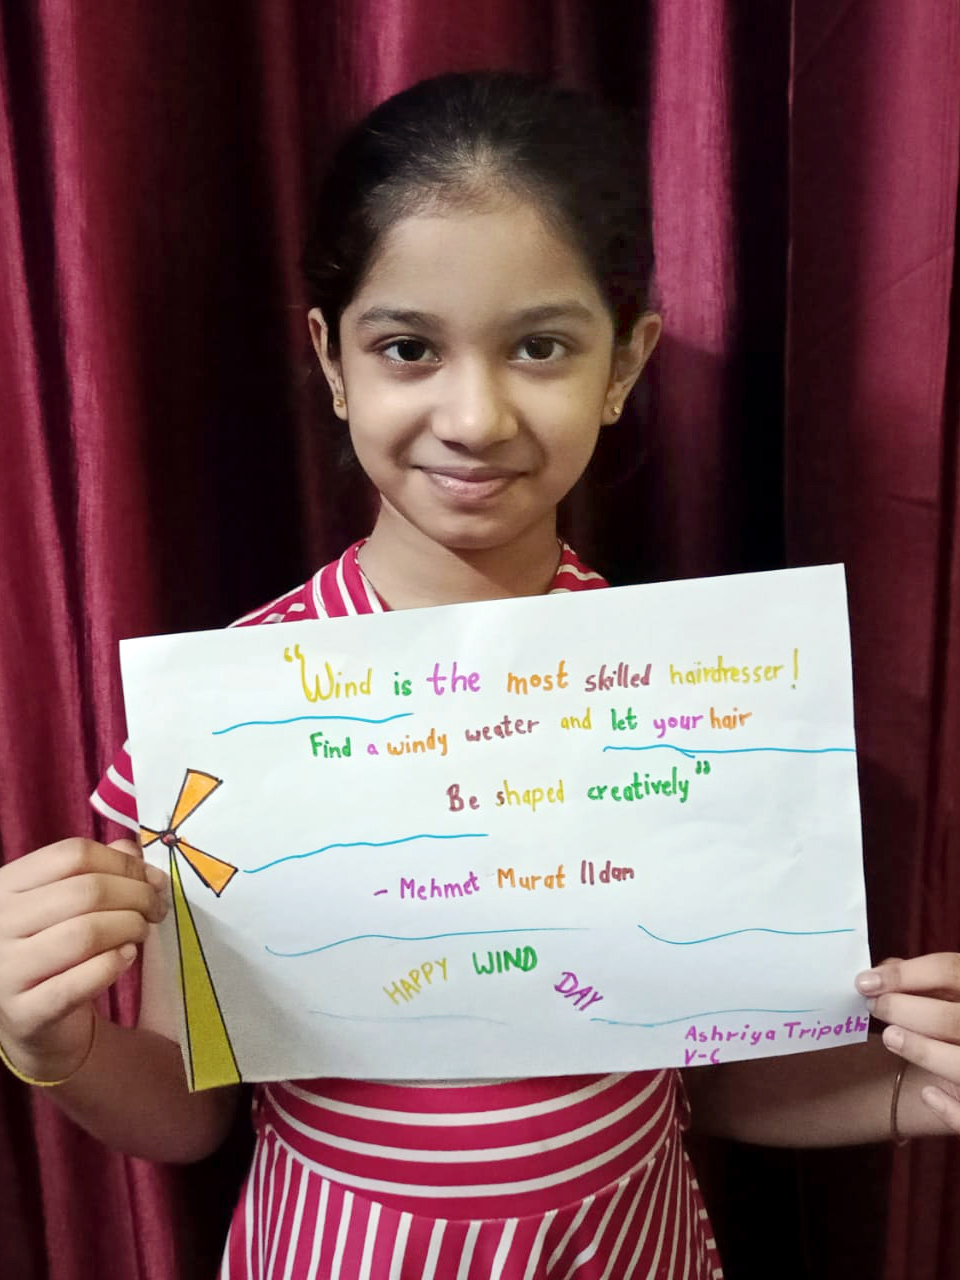 "Wind is the most skilled hairdresser!
Find a windy weater and let your hair
Be shaped creatively"
- Mehmet Murat Ildan
HAPPY WIND DAY
Ashriya Tripathi
V-C